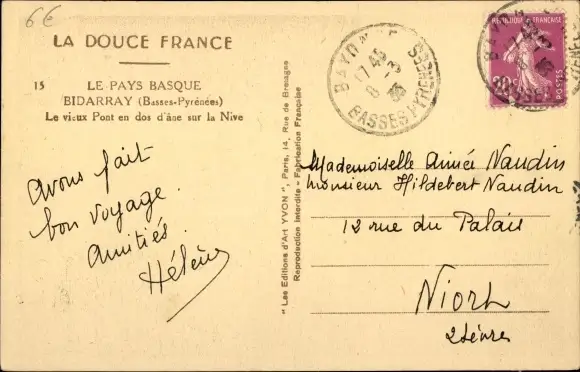 6€
LA DOUCE FRANCE
15 LE PAYS BASQUE
BIDARRAY (Basses-Pyrénées)
Le vieux Pont en dos d'âne sur la Nive
Avons fait
bon voyage.
Amitiés.
Hélène
"Les Editions d'Art YVON", Paris, 14, Rue de Bretagne
Reproduction Interdite - Fabrication Française
BASSES PYRENEES
17 45
RÉPUBLIQUE FRANÇAISE
POSTES
Mademoiselle Aimée Naudin
Monsieur Hildebert Naudin
12 rue du Palais
Niort
2 Sèvres